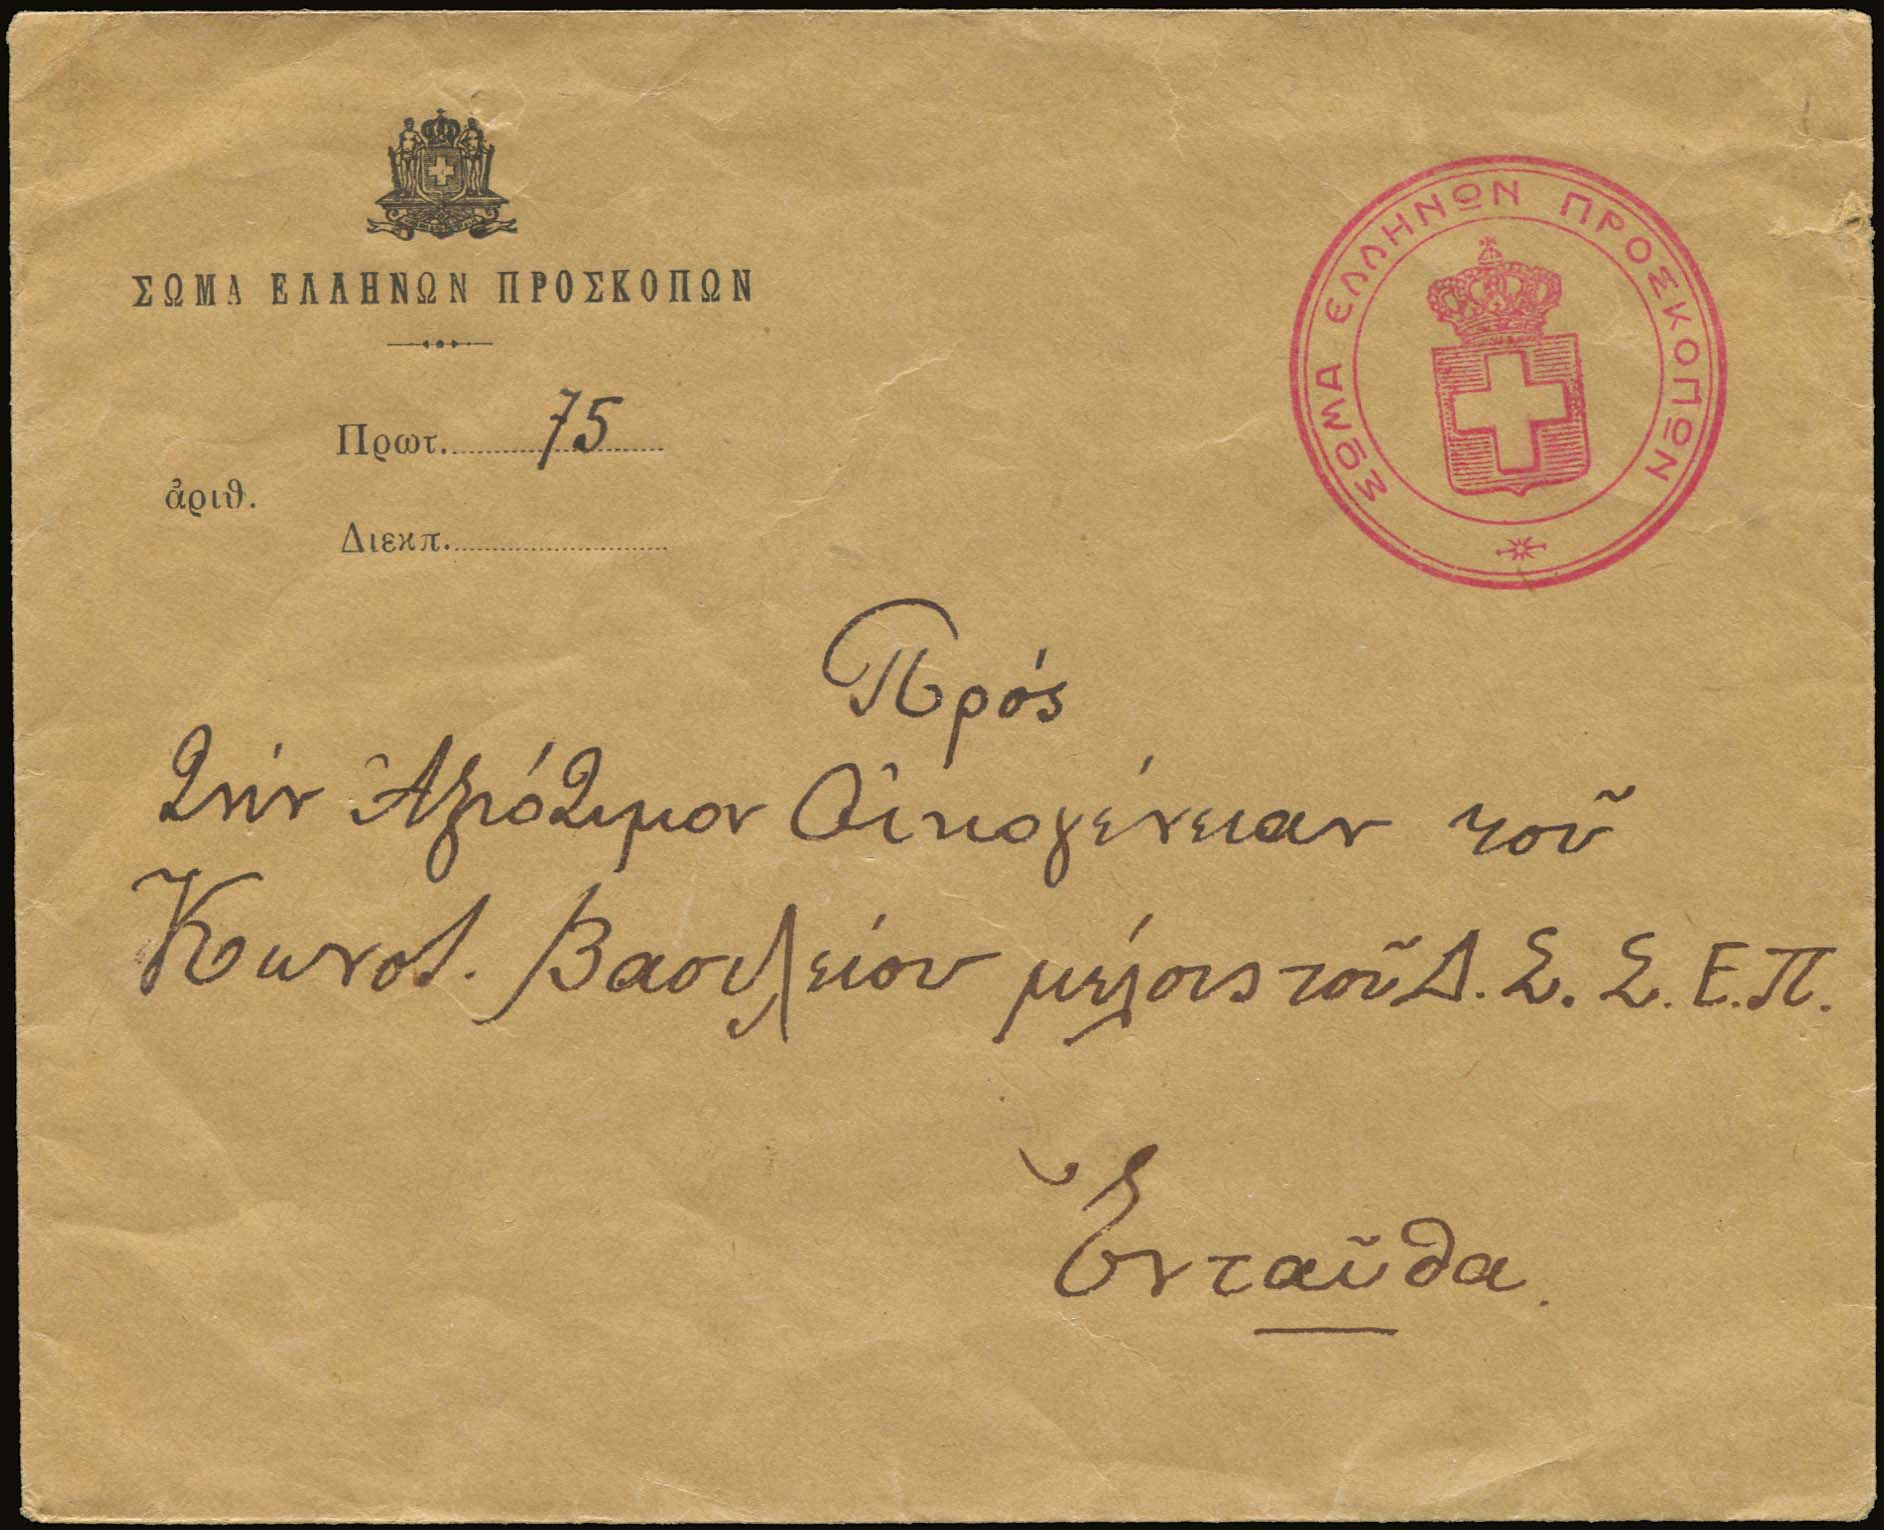 ΣΩΜΑ ΕΛΛΗΝΩΝ ΠΡΟΣΚΟΠΩΝ
Πρωτ. 75
ἀριθ.
Διεκπ.
ΣΩΜΑ ΕΛΛΗΝΩΝ ΠΡΟΣΚΟΠΩΝ
Πρός
Τήν Ἀξιότιμον Οἰκογένειαν τοῦ
Κωνστ. Βασιλείου μέλους τοῦ Δ. Σ. Σ. Ε. Π.
Ἐνταῦθα.